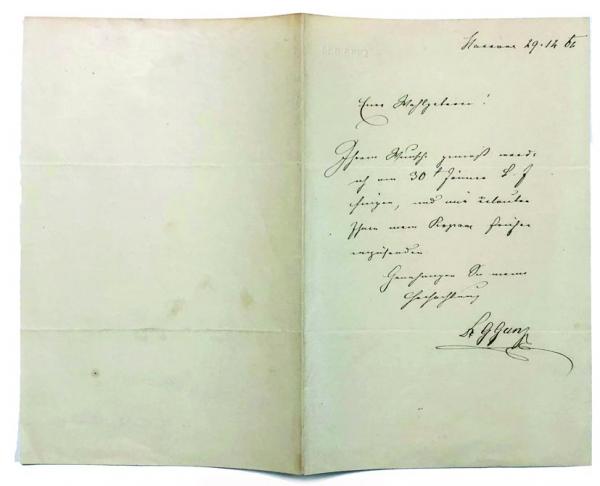 Hannover 29.12 62
Euer Wohlgeboren!
Ihrem Wunsche gemäß werde
ich am 30t Jänner k. J
singen, und mir erlauben
Ihnen mein Repert. früher
einzusenden
Genehmigen Sie meine
Hochachtung
Dr G Gunz